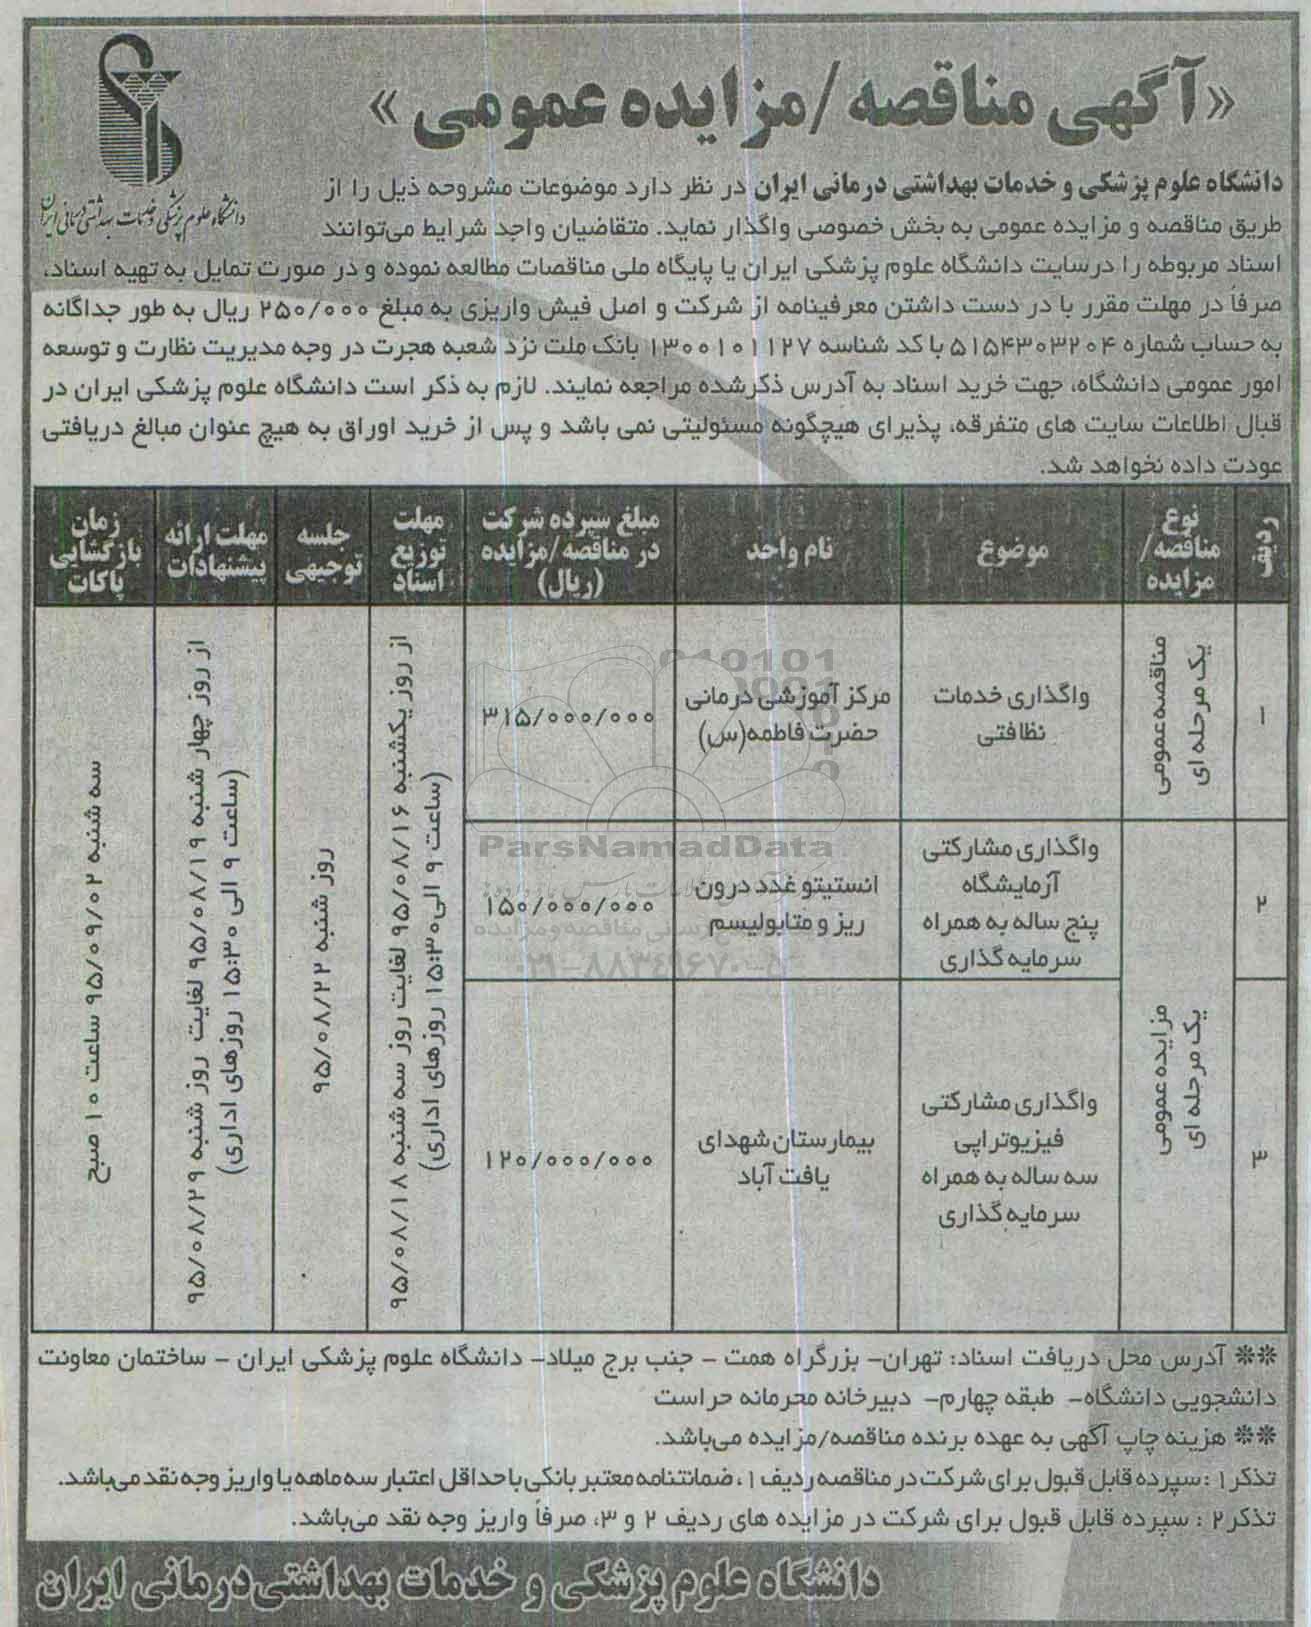 «آگهی مناقصه/مزایده عمومی»
دانشگاه علوم پزشکی و خدمات بهداشتی درمانی ایران
دانشگاه علوم پزشکی و خدمات بهداشتی درمانی ایران در نظر دارد موضوعات مشروحه ذیل را از
طریق مناقصه و مزایده عمومی به بخش خصوصی واگذار نماید. متقاضیان واجد شرایط می‌توانند
اسناد مربوطه را درسایت دانشگاه علوم پزشکی ایران یا پایگاه ملی مناقصات مطالعه نموده و در صورت تمایل به تهیه اسناد،
صرفاً در مهلت مقرر با در دست داشتن معرفینامه از شرکت و اصل فیش واریزی به مبلغ ۲۵۰/۰۰۰ ریال به طور جداگانه
به حساب شماره ۵۱۵۴۳۰۳۲۰۴ با کد شناسه ۱۳۰۰۱۰۱۱۲۷ بانک ملت نزد شعبه هجرت در وجه مدیریت نظارت و توسعه
امور عمومی دانشگاه، جهت خرید اسناد به آدرس ذکرشده مراجعه نمایند. لازم به ذکر است دانشگاه علوم پزشکی ایران در
قبال اطلاعات سایت های متفرقه، پذیرای هیچگونه مسئولیتی نمی باشد و پس از خرید اوراق به هیچ عنوان مبالغ دریافتی
عودت داده نخواهد شد.
ردیف
نوع
مناقصه/
مزایده
موضوع
نام واحد
مبلغ سپرده شرکت
در مناقصه/مزایده
(ریال)
مهلت
توزیع
اسناد
جلسه
توجیهی
مهلت ارائه
پیشنهادات
زمان
بازگشایی
پاکات
۱
مناقصه عمومی
یک مرحله ای
واگذاری خدمات
نظافتی
مرکز آموزشی درمانی
حضرت فاطمه(س)
۳۱۵/۰۰۰/۰۰۰
از روز یکشنبه ۹۵/۰۸/۱۶ لغایت روز سه شنبه ۹۵/۰۸/۱۸
(ساعت ۹ الی۱۵:۳۰ روزهای اداری)
روز شنبه ۹۵/۰۸/۲۲
از روز چهار شنبه ۹۵/۰۸/۱۹ لغایت روز شنبه ۹۵/۰۸/۲۹
(ساعت ۹ الی ۱۵:۳۰ روزهای اداری)
سه شنبه ۹۵/۰۹/۰۲ ساعت ۱۰ صبح
۲
مزایده عمومی
یک مرحله ای
واگذاری مشارکتی
آزمایشگاه
پنج ساله به همراه
سرمایه گذاری
انستیتو غدد درون
ریز و متابولیسم
۱۵۰/۰۰۰/۰۰۰
۳
واگذاری مشارکتی
فیزیوتراپی
سه ساله به همراه
سرمایه گذاری
بیمارستان شهدای
یافت آباد
۱۲۰/۰۰۰/۰۰۰
ParsNamadData
۰۲۱-۸۸۳۴۹۶۷۰-۵
** آدرس محل دریافت اسناد: تهران- بزرگراه همت - جنب برج میلاد- دانشگاه علوم پزشکی ایران - ساختمان معاونت
دانشجویی دانشگاه- طبقه چهارم- دبیرخانه محرمانه حراست
** هزینه چاپ آگهی به عهده برنده مناقصه/مزایده می‌باشد.
تذکر۱: سپرده قابل قبول برای شرکت در مناقصه ردیف ۱، ضمانتنامه معتبر بانکی با حداقل اعتبار سه ماهه یا واریز وجه نقد می‌باشد.
تذکر۲ : سپرده قابل قبول برای شرکت در مزایده های ردیف ۲ و ۳، صرفاً واریز وجه نقد می‌باشد.
دانشگاه علوم پزشکی و خدمات بهداشتی‌درمانی ایران